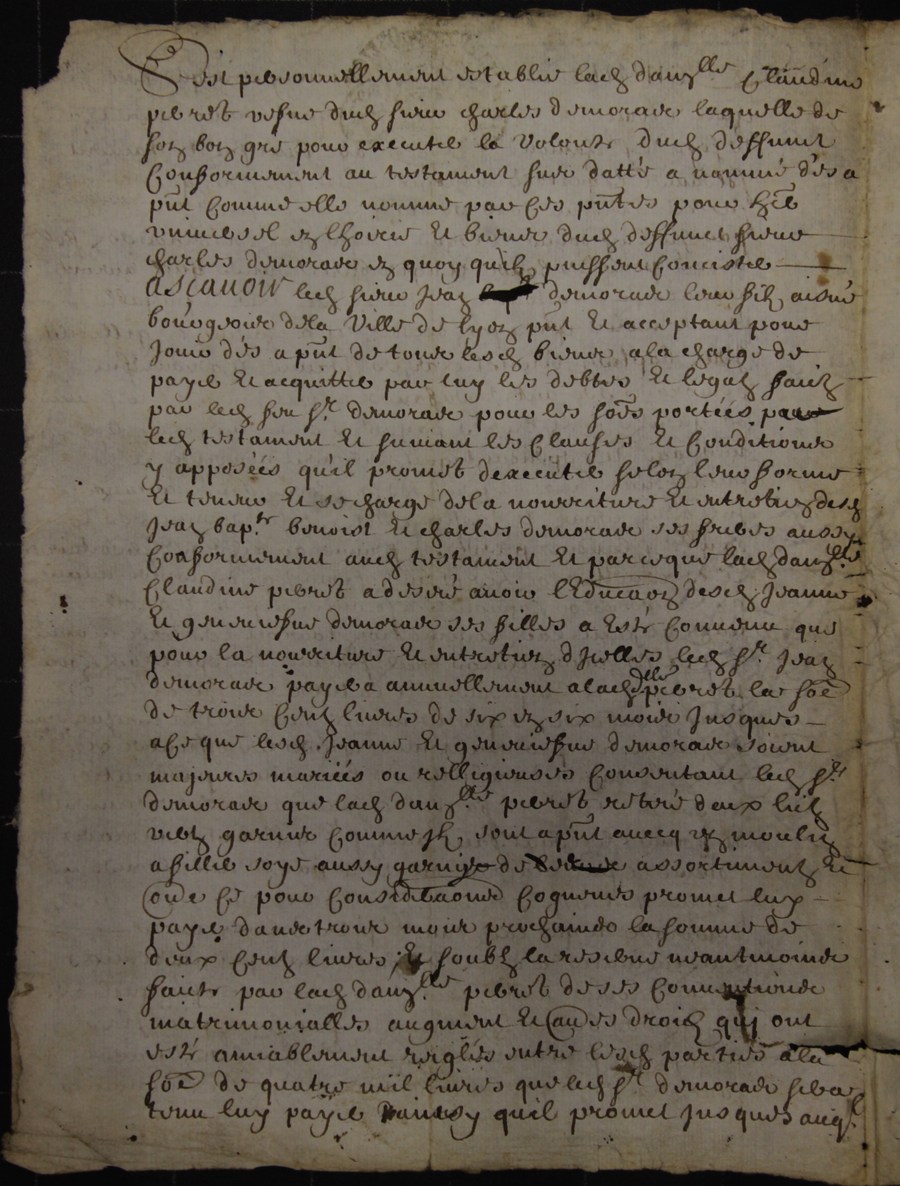 S'est personnellement establie lad damlle Claudine
perret vefve dud sieur charles demorade laquelle de
son bon gré pour executer la volonté dud deffunct
Conformement au testament sus datté a nommé dés a
pnt comme elle nomme par ces pntes pour her
universel en lhoirie et biens dud deffunct sieur
charles demorade en quoy quilz puissent concister
ascavoir led sieur Jean demorade leur filz aisné
bourgeois dela Ville de lyon pnt et acceptant pour
Jouir dés a pnt de tous lesd biens ala charge de
payer et acquitter par luy les debtes et legatz faictz
par led feu sr demorade pour les soes portées par
led testament et suivant les clauses et conditions
y apposées qu'il promet dexecuter selon leur forme
et teneur et se charge dela nourriture et entretien desd
Jean bapte benoist et charles demorade ses freres aussy
conformement aud testament et parceque lad damlle
Claudine perret a desiré avoir l'Educaon desd Jeanne
et geneviefve demorade ses filles a esté convenu que
pour la nourriture et entretien d'Jcelles led sr Jean
demorade payera annuellement alad dlle perret la soe
de trois centz livres de six en six mois Jusques
ace que lesd Jeanne et geneviefve demorade soient
majeures mariées ou relligieuses consentant led sr
demorade que lad damlle perret retire deux lictz
vertz garnis comme Jlz sont a pnt avecq un moulin
a filler soye aussy garny de assortiment et
outre ce pour consideraons cogneues promet luy
payer dans trois mois prochains la somme de
deux centz livres, et soubz la reserve neantmoins
faicte par lad damlle perret de ses conventions
matrimonialles augment et aues droictz qui ont
esté amiablement reglés entre lesd parties ala
soe de quatre mil livres que led sr demorade sera
tenu luy payer ainsy qu'il promet Jusques auqt